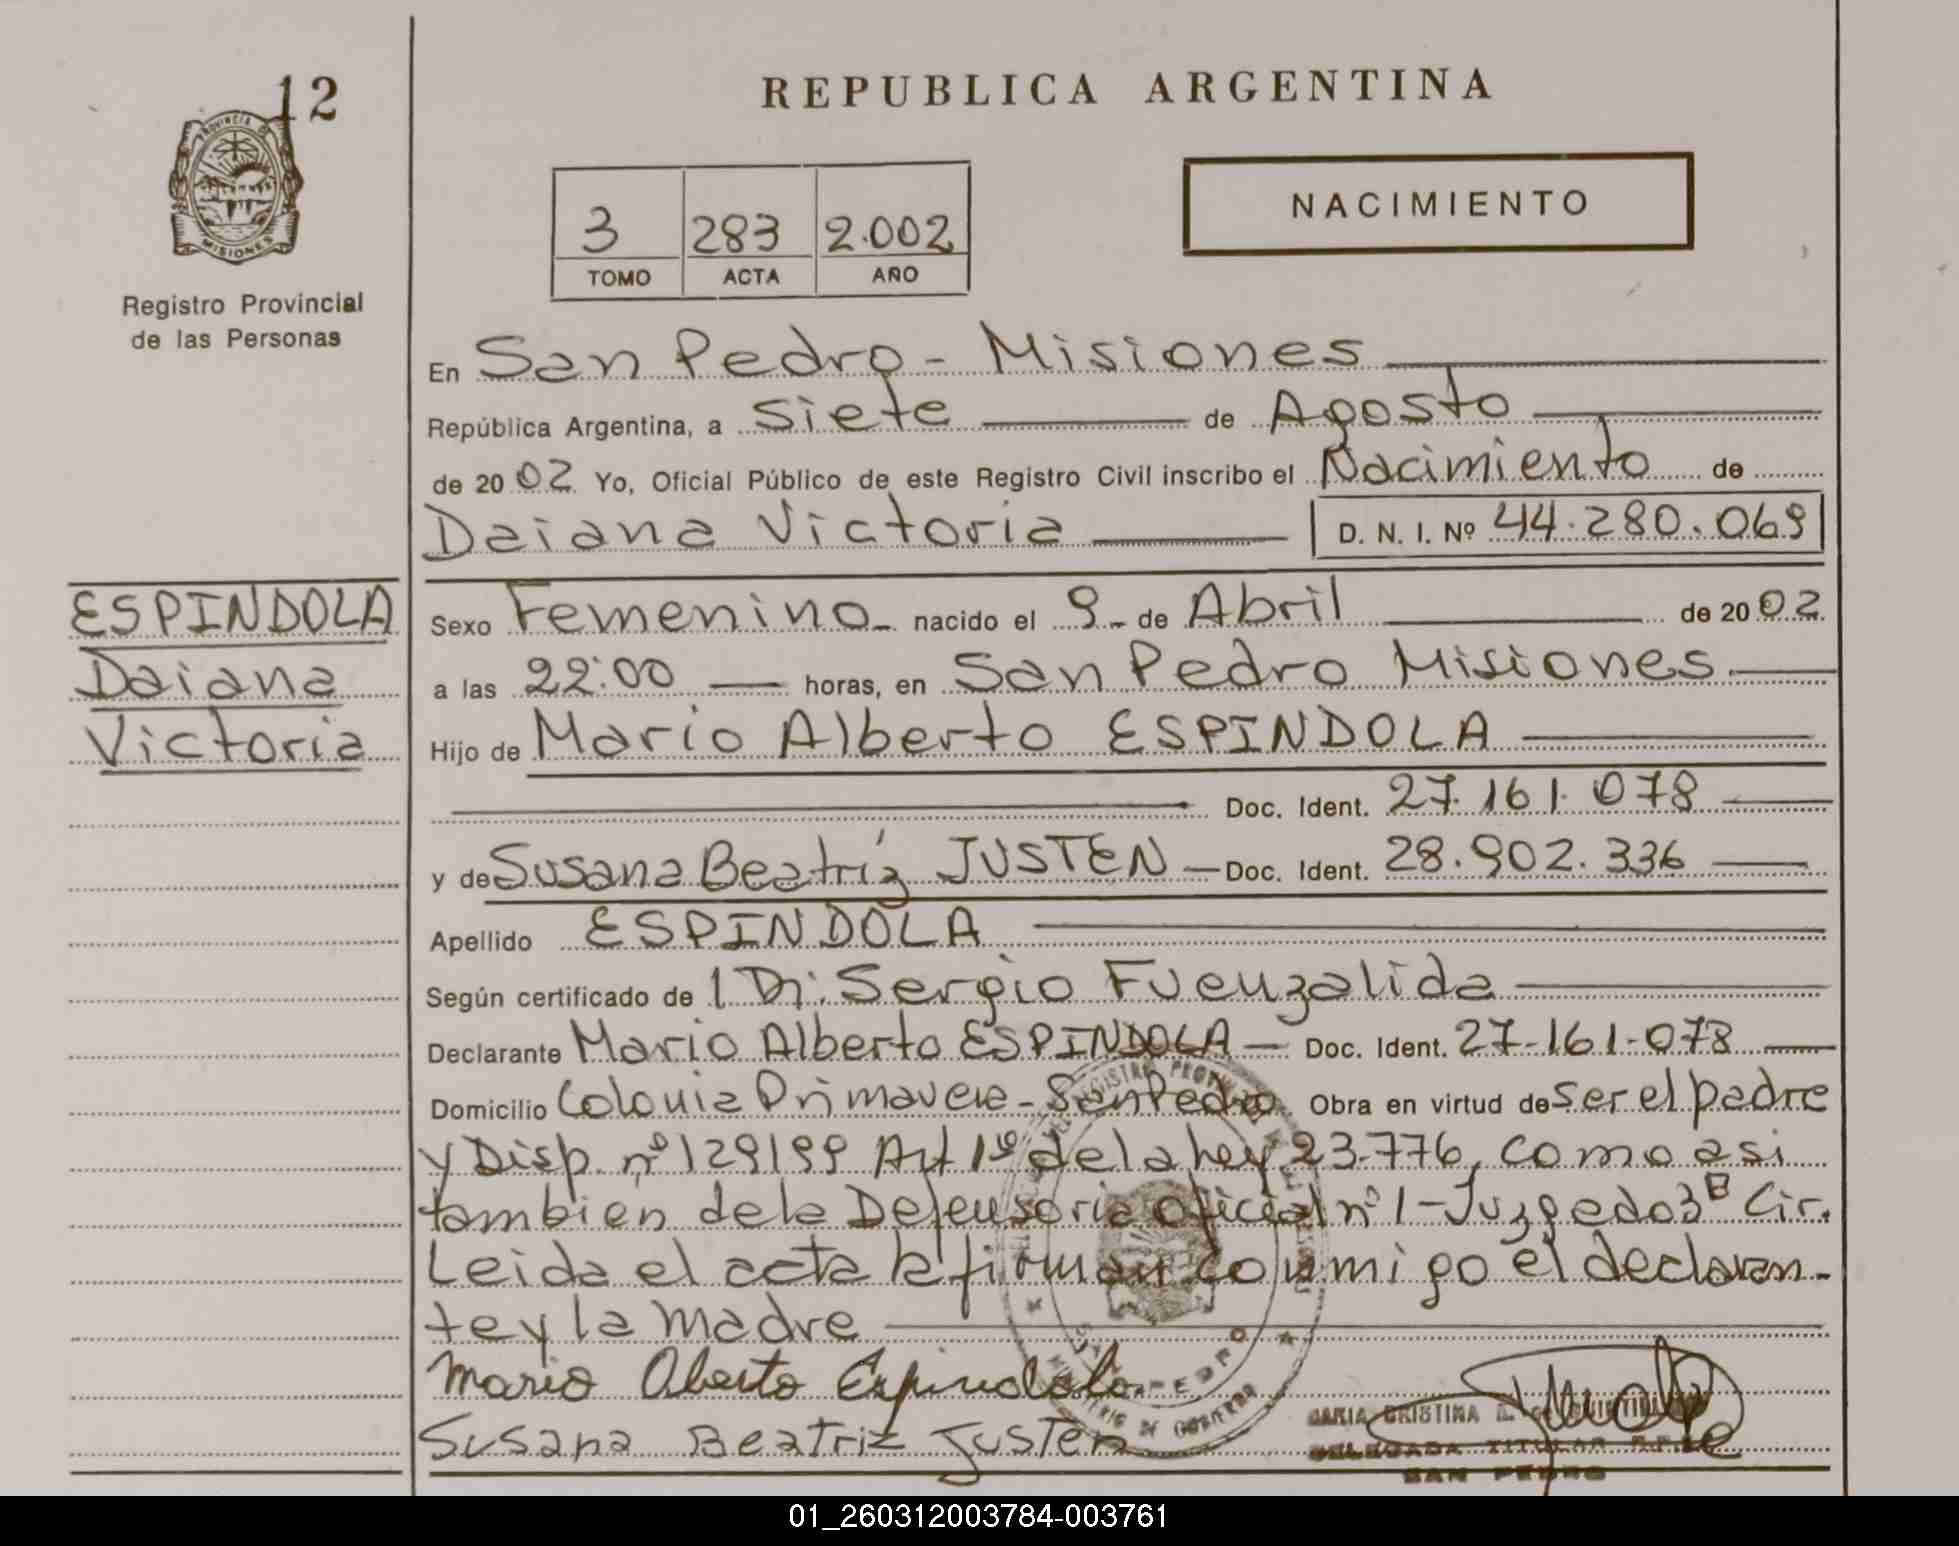 12
PROVINCIA DE
MISIONES
Registro Provincial
de las Personas
REPUBLICA ARGENTINA
3 283 2.002
TOMO ACTA AÑO
NACIMIENTO
En San Pedro - Misiones
República Argentina, a siete de Agosto
de 2002 Yo, Oficial Público de este Registro Civil inscribo el Nacimiento de
Daiana Victoria D. N. I. Nº 44.280.069
ESPINDOLA
Daiana
Victoria
Sexo Femenino nacido el 9 de Abril de 2002
a las 22:00 horas, en San Pedro Misiones
Hijo de Mario Alberto ESPINDOLA
Doc. Ident. 27.161.078
y de Susana Beatríz JUSTEN Doc. Ident. 28.902.336
Apellido ESPINDOLA
Según certificado de Sergio Fuenzalida
Declarante Mario Alberto ESPINDOLA Doc. Ident. 27-161-078
Domicilio Colonia Primavera - San Pedro Obra en virtud de ser el padre
y Disp. nº 129199 Art 1º de la ley 23.776, como asi
tambien de la Defensoria oficial nº 1 - Juzgado 3ª Cir.
Leida el acta la firman conmigo el declaran-
te y la madre
Mario Alberto Espindola
Susana Beatriz Justen
MINISTERIO DE GOBIERNO
SAN PEDRO
MARIA CRISTINA
DELEGADA TITULAR
SAN PEDRO
01_260312003784-003761